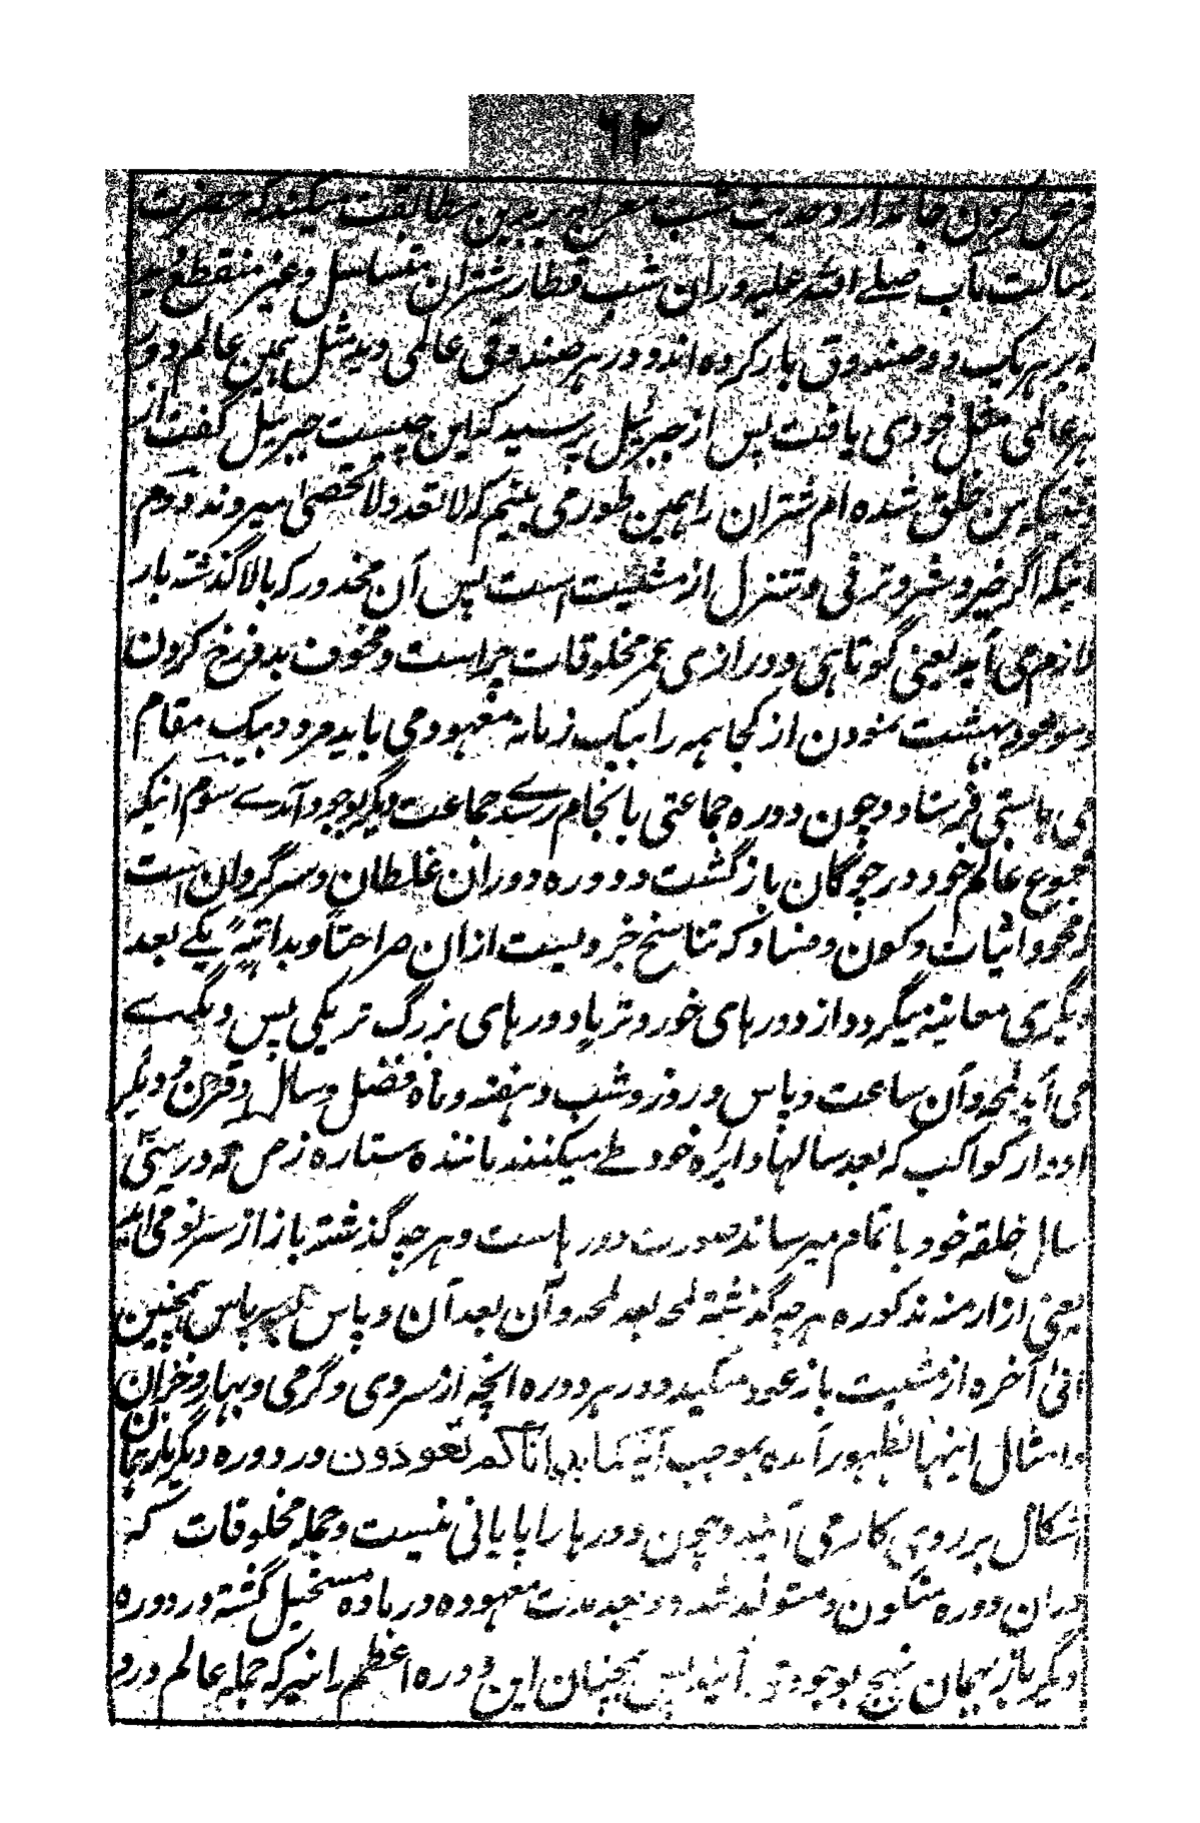 ۶۲
فرق کردن جاندار و حدیث شب معراج برین مطابقت میکند که حضرت
رسالت مآب صلے اللہ علیہ دران شب قطار شتران متسلسل و غیر منقطع دید
که بر هر یک دو صندوق بار کرده اند و در هر صندوقی عالمی دید مثل همین عالم و در
هر عالمی مثل خودی یافت پس از جبرئیل پرسید که این چیست جبرئیل گفت از
وقتیکه من خلق شده ام شتران را همین طور می بینم که لا تعد ولا تحصی میروند دوم
اینکه اگر خیر و شر و ترقی و تنزل از مشیت است پس آن محذور که بالا گذشته بار
لازم می آید یعنی کوتاهی و درازی عمر مخلوقات چراست و مخوف بدوزخ کردن
و موعود بهشت نمودن از کجا همه را بیک زمانه معهود می باید مرد و بیک مقام
می بایستی فرستاد و چون دوره جماعتی بانجام رسے جماعت دیگر بوجود آمدے سوم اینکه
مجموع عالم خود در چوگان بازگشت و دوره دوران غلطان و سرگردان است
و محو و اثبات و کون و فساد که تناسخ خبر ویست ازان صراحتاً و بداهتهً یکے بعد
دیگری معاینه میگردد از دورهای خورد تر یا دورهای بزرگ تر یکی پس دیگرے
می آید لمحه و آن ساعت و پاس و روز و شب و هفته و ماه فضل و سال و قرن و دیگر
ادوار کواکب که بعد سالها دایره خود طے میکنند مانند ستاره زحل که در سی
سال خلقه خود باتمام میرساند صورت دورهاست و هر چه گذشته باز از سر نو می آید
یعنی از ازمنه مذکوره هر چه گذشته لمحه بعد لمحه و آن بعد آن و پاس پس پاس همچنین
الیٰ آخره از مشیت باز عود میکند و در هر دوره آنچه از سردی و گرمی و بهار و خزان
و امثال اینها بظهور آمده بموجب آیه کما بدأناکم تعودون در دوره دیگر باز همان
اشکال بر روی کار می آیند و چون دورها را پایانی نیست و جمله مخلوقات که
دران دوره متکون و متولد شده و بعد مدت معهوده در ماده مستحیل گشته در دوره
دیگر باز بهمان نهج بوجود می آیند پس همچنان این دوره اعظم را نیز که جمله عالم درو